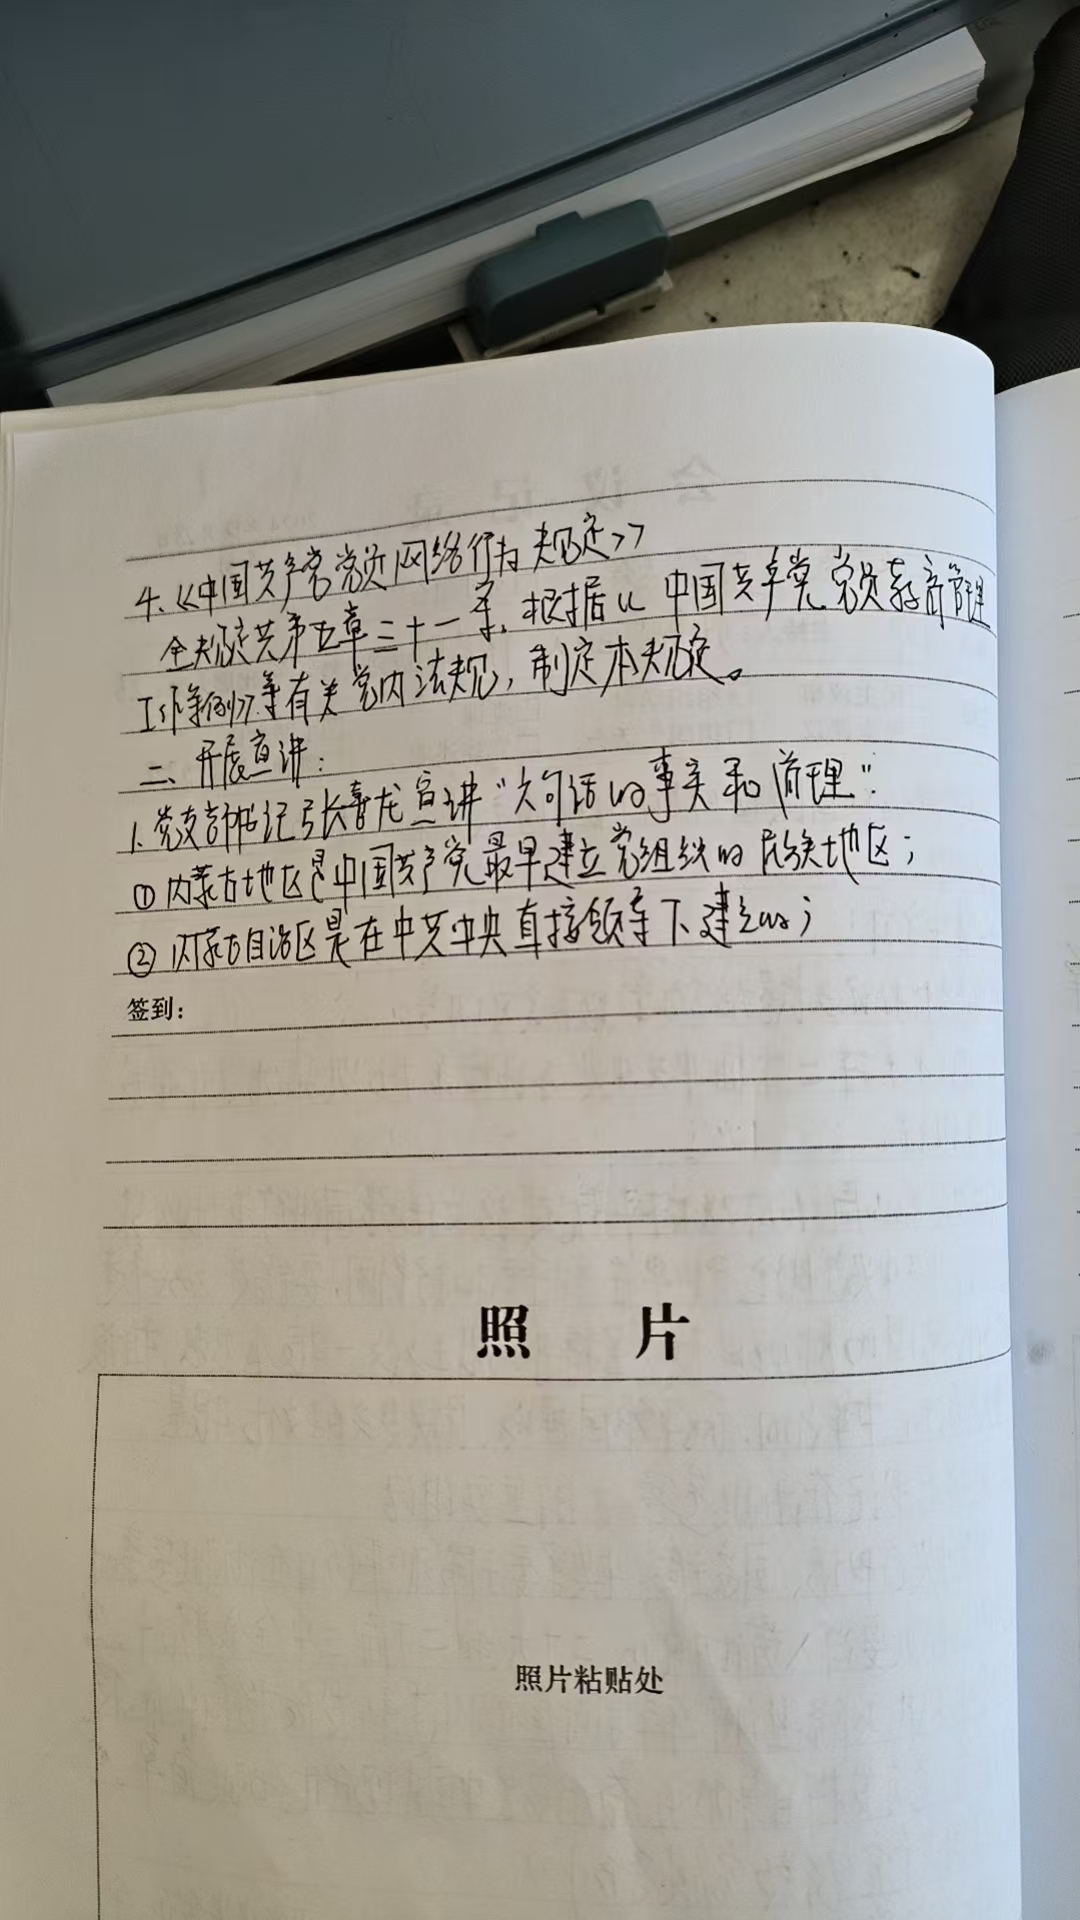 4、《中国共产党党员网络行为规定》
全规定共第五章二十一条，根据《中国共产党党员教育管理
工作条例》等有关党内法规，制定本规定。
二、开展宣讲：
1、党支部书记张喜龙宣讲“六句话的事实和道理”：
① 内蒙古地区是中国共产党最早建立党组织的民族地区；
② 内蒙古自治区是在中共中央直接领导下建立的；
签到：
照 片
照片粘贴处